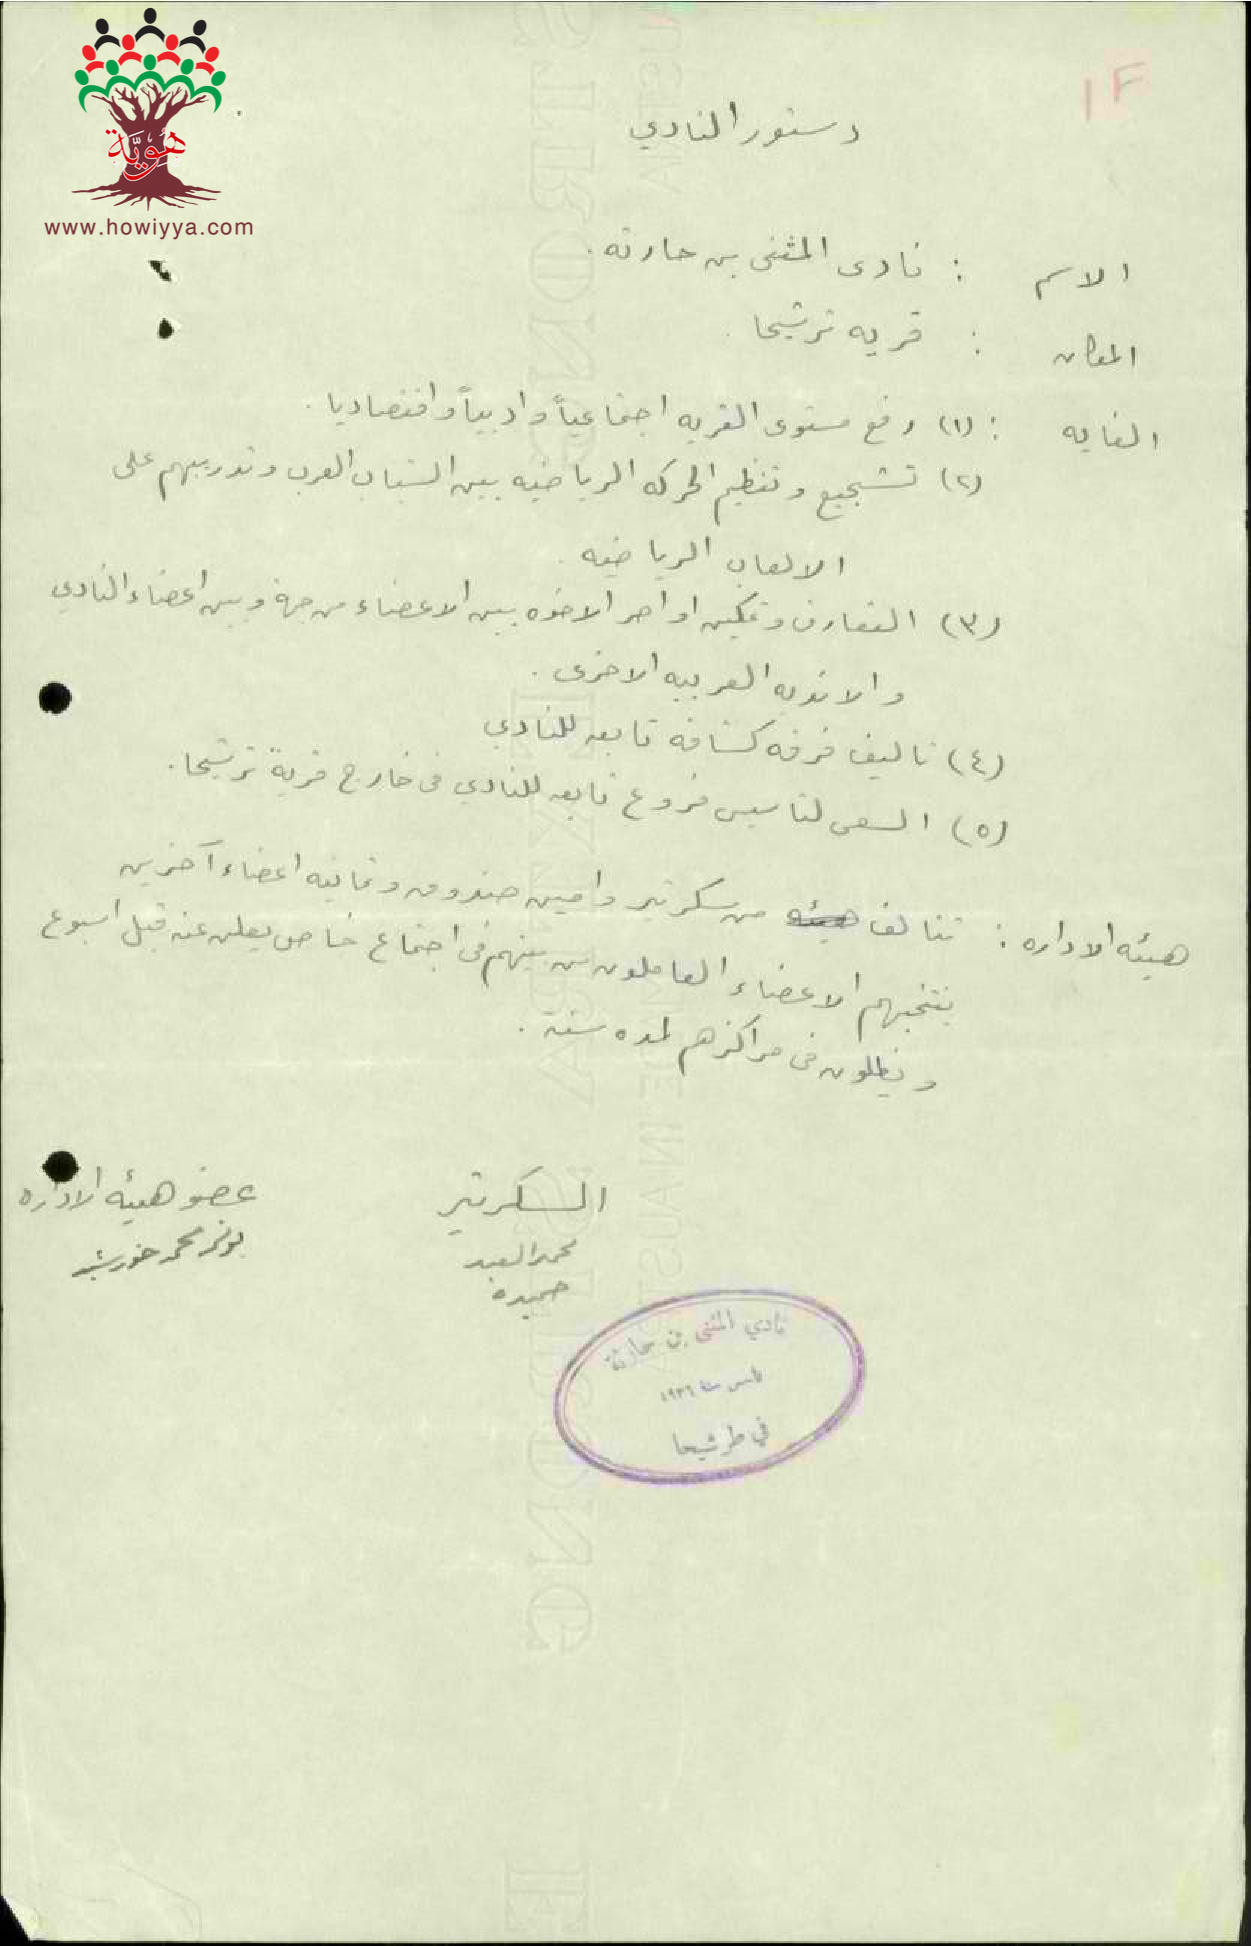 هوية
www.howiyya.com
1F
دستور النادي
الاسم : نادى المثنى بن حارثه .
المكان : قريه ترشيحا .
الغايه : (١) رفع مستوى القريه اجتماعياً وادبياً واقتصاديا .
(٢) تشجيع وتنظيم الحركه الرياضيه بين الشباب العرب وتدريبهم على
الالعاب الرياضيه .
(٣) التعارف وتمكين اواصر الاخوه بين الاعضاء من جهة وبين اعضاء النادي
والانديه العربيه الاخرى .
(٤) تاليف فرقه كشافه تابعه للنادي
(٥) السعى لتاسيس فروع تابعه للنادي فى خارج قرية ترشيحا .
هيئه الاداره : تتالف هيئه من سكرتير وامين صندوق وثمانيه اعضاء آخرين
ينتخبهم الاعضاء العاملون من بينهم فى اجتماع خاص يعلن عنه قبل اسبوع
ويظلون فى مراكزهم لمده سنة .
السكرتير
محمد العبد
حميده
عضو هيئه الاداره
محمد خورشيد
نادي المثنى بن حارثة
تأسس سنة ١٩٣٦
في طرشيحا